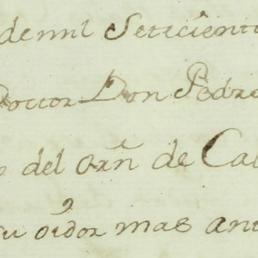 de mil Setecient
Doctor Don Pedro
del orñ de Ca
su oidor mas ant